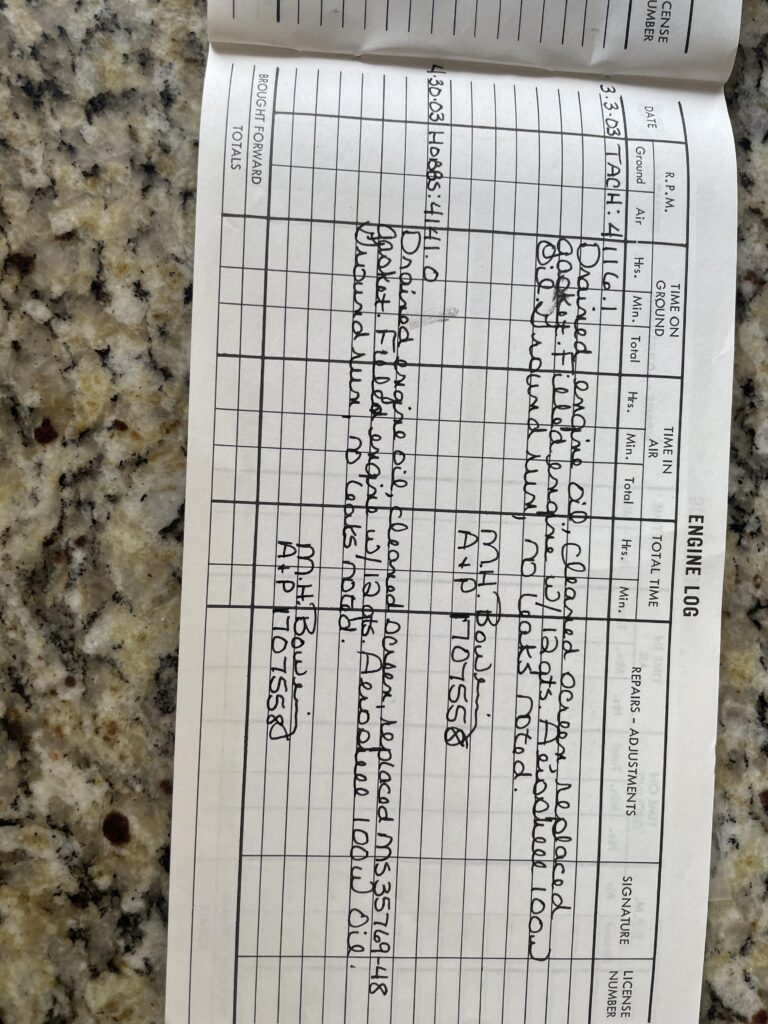 LICENSE
NUMBER
ENGINE LOG
DATE R.P.M. TIME ON GROUND TIME IN AIR TOTAL TIME REPAIRS - ADJUSTMENTS SIGNATURE LICENSE NUMBER
Ground Air Hrs. Min. Total Hrs. Min. Total Hrs. Min.
3.3.03 TACH: 4116.1
Drained engine oil, cleaned screen, replaced
gasket. Filled engine w/ 12 qts. Aeroshell 100W
Oil. Ground run, no leaks noted.
M.H. Bowen
A+P 1707558
4.30.03 HOBBS: 4141.0
Drained engine oil, cleaned screen, replaced MS35769-48
gasket. Filled engine w/ 12 qts. Aeroshell 100W Oil.
Ground run, no leaks noted.
M.H. Bowen
A+P 1707558
BROUGHT FORWARD
TOTALS